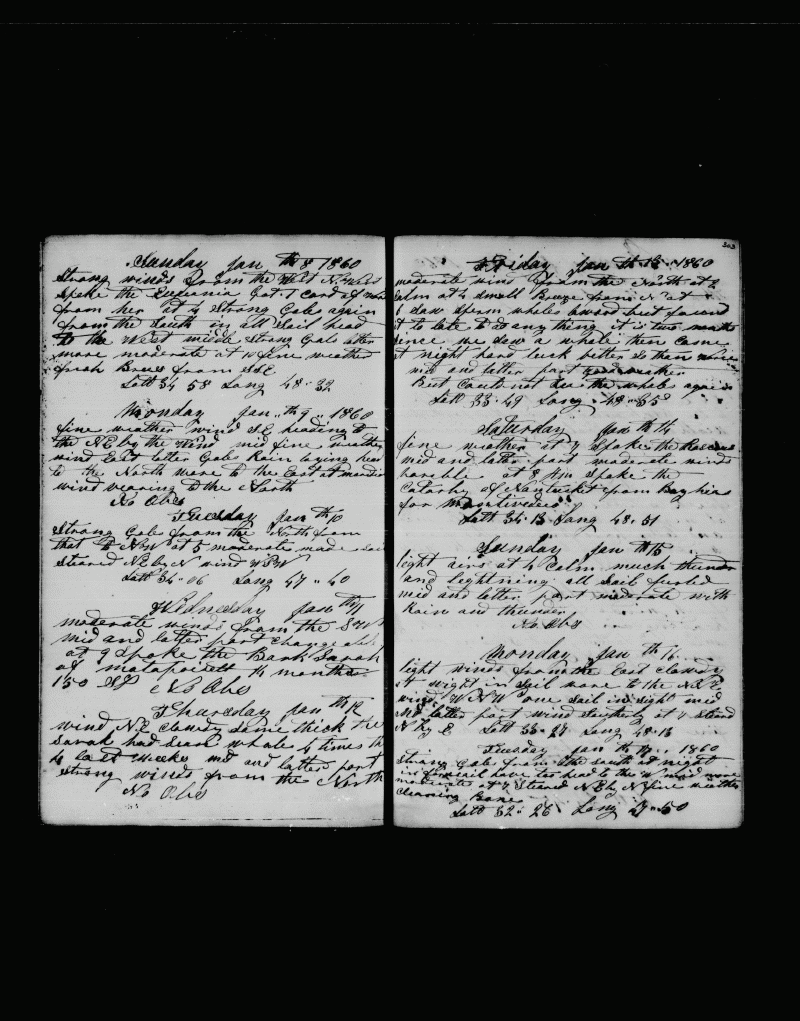 Sunday Jan th 8 1860
Strong winds from the West N. W
Spoke the Eugenia Got 1 Card of
from her at 4 Strong Gale again
from the South in all Sail head
to the West middle Strong Gale latter
more moderate at 10 fine weather
fresh Breze from SSE
Latt 34 58 Long 48 " 32
Monday Jan " th 9 " 1860
fine weather wind SE heading to
the NE by the Wind mid fine weather
wind East latter Gale Rain laying head
to the North more to the East at
wind vearing to the North
No Obs
Tuesday Jan th 10
Strong Gale from the North from
that to NW at 5 moderate made Sail
Steared NE by N wind WSW
Latt 34 " 06 Long 47 " 40
Wednesday Jan th 11
moderate winds from the SW
mid and latter part changeable
at 9 Spoke the Bark Sarah
of matapoisett 14 months
150 Sp No Obs
Thursday Jan th 12
wind N.E cloudy some thick the
Sarah had seen whale 4 times the
4 last weeks mid and latter part
strong winds from the North
No Obs
303
Friday Jan th 13 " 1860
moderate wind from the North at 2
Calm at 4 small Breeze from N at
6 saw sperm whales but found
it to late to do any thing it is two months
since we saw a whale then came
at night hard luck better so then
mid and latter part good weather
But Could not See the whales again
Latt 33 " 49 Long " 48 " 35
Saturday Jan th 14
fine weather at 7 Spoke the Roscoe
mid and latter part moderate winds
at 8 Am Spoke the
of Nantucket from
for Montevideo
Latt 34 " 13 Long 48 " 51
Sunday Jan th 15
light airs at 4 Calm much thunder
and lightning all Sail furled
mid and latter part moderate with
Rain and thunder
No Obs
Monday Jan th 16
light winds from the East cloudy
at night in Sail more to the N.E
wind W N W one Sail in sight mid
and latter part wind at 7 Steard
N by E Latt 33 " 27 Long 48 " 13
Tuesday Jan th 17 " 1860
Strong Gales from the south at night
in fore sail have too head to the W mid more
moderate at 7 Steared NE by N fine weather
Latt 32 " 26 Long 47 " 50